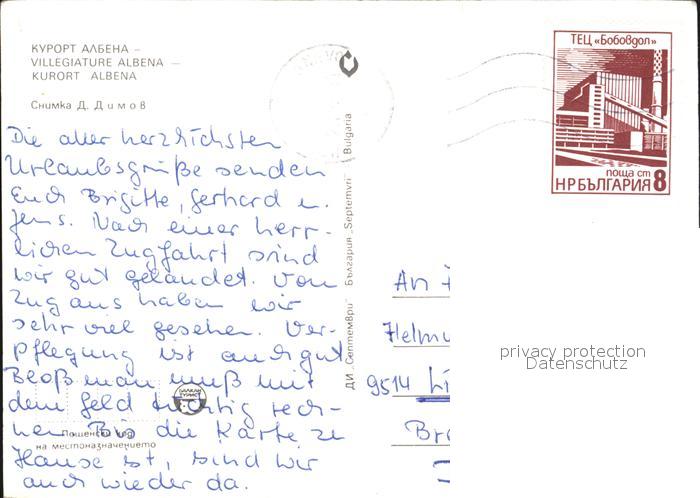 КУРОРТ АЛБЕНА –
VILLEGIATURE ALBENA –
KURORT ALBENA
Снимка Д. Димов
Die aller herzlichsten
Urlaubsgrüße senden
Euch Brigitte, Gerhard u.
Jens. Nach einer herr-
lichen Zugfahrt sind
wir gut gelandet. Vom
Zug aus haben wir
sehr viel gesehen. Ver-
pflegung ist auch gut
Bloß man muß mit
dem Geld tüchtig rech-
nen Bis die Karte zu
Hause ist, sind wir
auch wieder da.
БАЛКАН
ТУРИСТ
Пощенски код
на местоназначението
ДИ „Септември" България „Septemvri" Bulgaria
ТЕЦ «Бобовдол»
поща ст
НР БЪЛГАРИЯ 8
An
Helmu
9514 Li
Br
privacy protection
Datenschutz